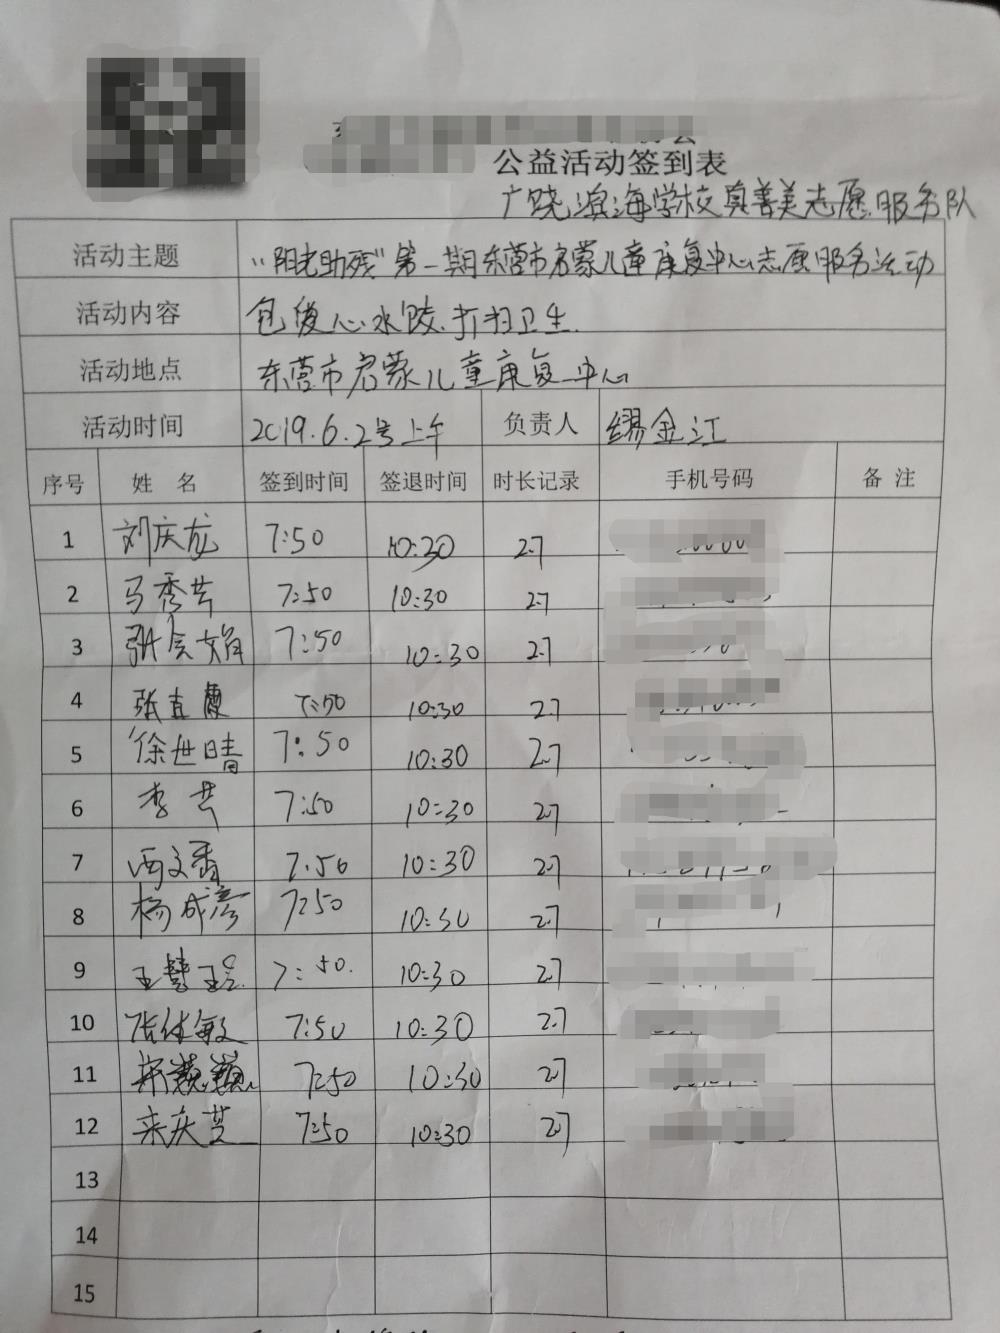 公益活动签到表
广饶滨海学校真善美志愿服务队
活动主题 “阳光助残”第一期东营市启蒙儿童康复中心志愿服务活动
活动内容 包爱心水饺.打扫卫生.
活动地点 东营市启蒙儿童康复中心
活动时间 2019.6.2号上午 负责人 缪金江
序号 姓 名 签到时间 签退时间 时长记录 手机号码 备 注
1 刘庆龙 7:50 10:30 2.7
2 马秀芸 7:50 10:30 2.7
3 张会娟 7:50 10:30 2.7
4 张直霞 7:50 10:30 2.7
5 徐世晴 7:50 10:30 2.7
6 李芸 7:50 10:30 2.7
7 西文香 7:50 10:30 2.7
8 杨成彦 7:50 10:30 2.7
9 王慧玲 7:50. 10:30 2.7
10 张传敏 7:50 10:30 2.7
11 7:50 10:30 2.7
12 宋庆芝 7:50 10:30 2.7
13
14
15